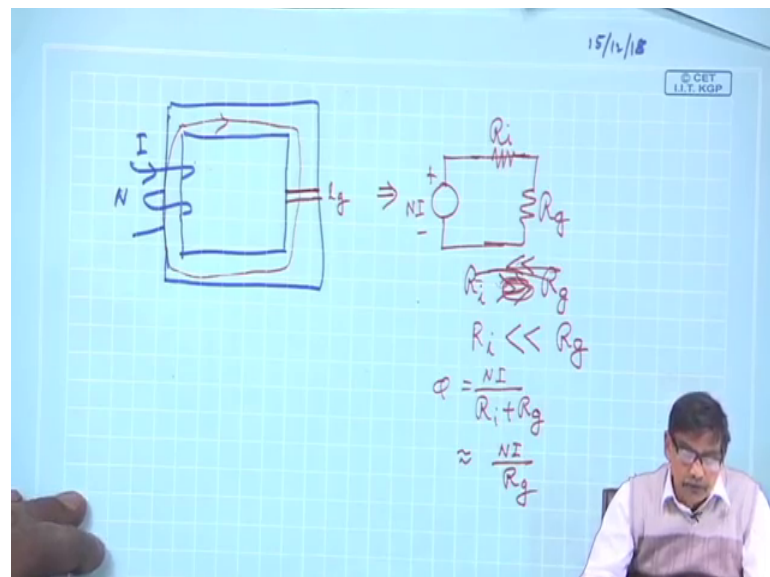 15/12/18
© CET
I.I.T. KGP
I
N
lg
⇒
NI
+
-
Ri
Rg
Ri << Rg
Ri << Rg
φ = NI / Ri + Rg
≈ NI / Rg